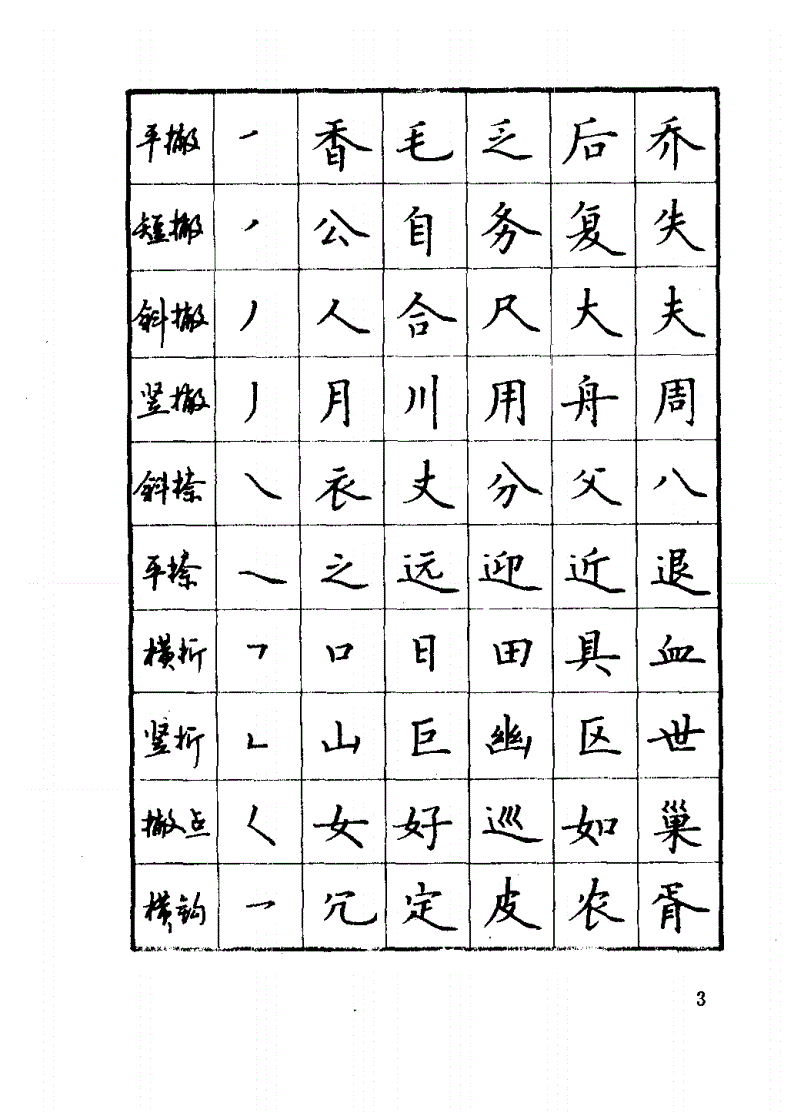 平撇 ㇒ 香 毛 乏 后 乔
短撇 ㇒ 公 自 务 复 失
斜撇 ㇓ 人 合 尺 大 夫
竖撇 丿 月 川 用 舟 周
斜捺 ㇏ 衣 丈 分 父 八
平捺 ㇏ 之 远 迎 近 退
横折 ㇕ 口 日 田 具 血
竖折 ㇗ 山 巨 幽 区 世
撇点 ㇛ 女 好 巡 如 巢
横钩 ㇖ 冗 定 皮 农 胥
3